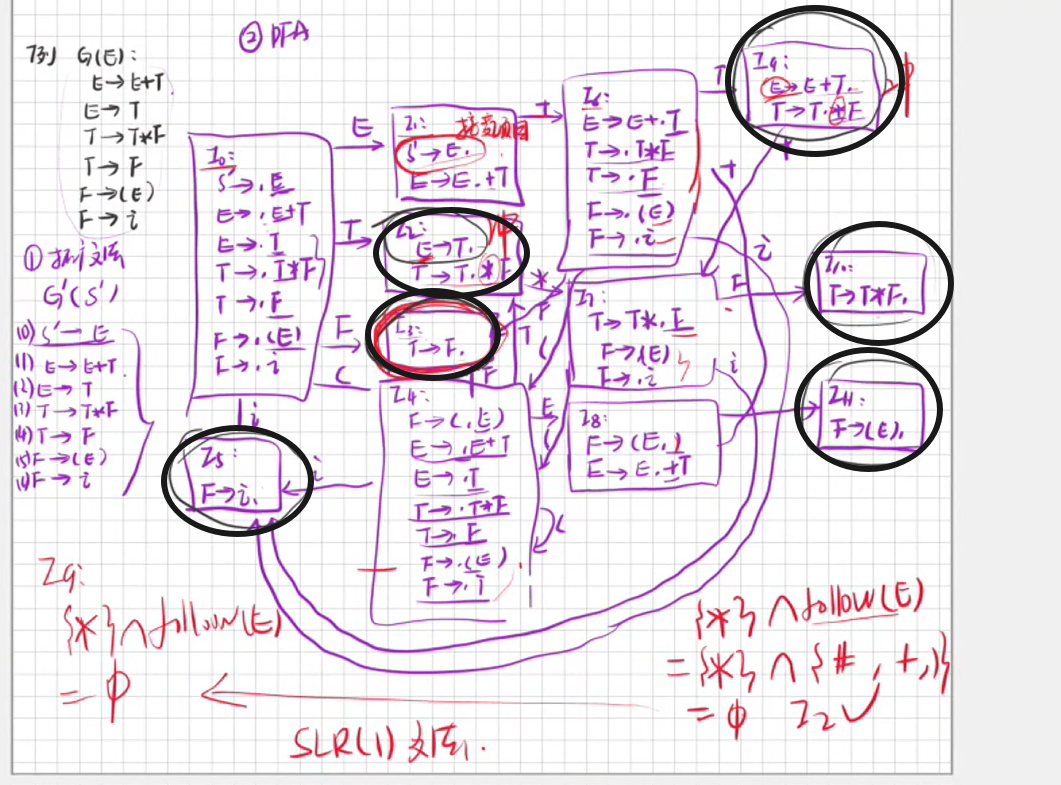 ② DFA
例) G(E):
E→E+T
E→T
T→T*F
T→F
F→(E)
F→i
① 拓广文法
G'(S')
(0) S'→E
(1) E→E+T
(2) E→T
(3) T→T*F
(4) T→F
(5) F→(E)
(6) F→i
I0:
S'→.E
E→.E+T
E→.T
T→.T*F
T→.F
F→.(E)
F→.i
E
T
F
(
i
I1:
接受项目
S'→E.
E→E.+T
I2:
E→T.
T→T.*F
I3:
T→F.
I4:
F→(.E)
E→.E+T
E→.T
T→.T*F
T→.F
F→.(E)
F→.i
I5:
F→i.
i
+
I6:
E→E+.T
T→.T*F
T→.F
F→.(E)
F→.i
*
F
T
(
F
E
(
I7:
T→T*.F
F→.(E)
F→.i
I8:
F→(E.)
E→E.+T
T
I9:
E→E+T.
T→T.*F
φ
*
+
i
F
i
I10:
T→T*F.
I11:
F→(E).
I9:
{*}∩follow(E)
=φ
{*}∩follow(E)
={*}∩{#,+,)}
=φ I2✓
SLR(1)文法.